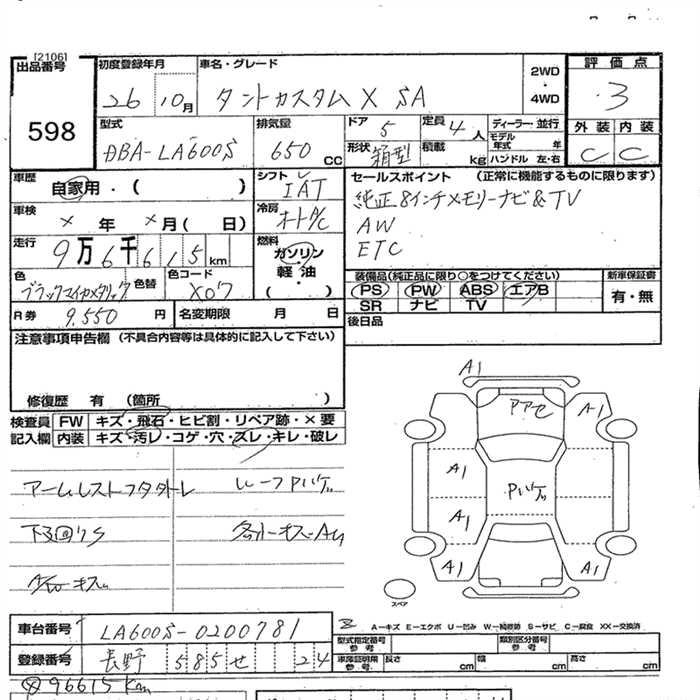 [2106]
出品番号
598
初度登録年月
26 10月
車名・グレード
タントカスタム X SA
2WD
・
4WD
評価点
3
外装 内装
C C
型式
DBA-LA600S
排気量
650 CC
ドア 5
定員 4人
形状 箱型
積載 kg
ディーラー・並行
モデル年式 年
ハンドル 左・右
車歴
自家用・( )
車検
× 年 × 月( 日)
走行
9万6千615km
色
ブラックマイカメタリック
色替
色コード
X07
R券 9,550 円
名変期限 月 日
シフト
IAT
冷房
オートA/C
燃料
ガソリン
軽油
(・)
セールスポイント (正常に機能するものに限ります)
純正8インチメモリーナビ&TV
AW
ETC
装備品(純正品に限り○をつけてください)
PS PW ABS エアB
SR ナビ TV
新車保証書
有・無
後日品
注意事項申告欄 (不具合内容等は具体的に記入して下さい)
修復歴 有 (箇所 )
検査員記入欄
FW キズ・飛石・ヒビ割・リペア跡・×要
内装 キズ・汚レ・コゲ・穴・ズレ・キレ・破レ
ルーフPハゲ
A1
アアセ
A1
A1
Pハゲ
A1
A1
A1
スペア
A-キズ E-エクボ U-凹み W-補修跡 S-サビ C-腐食 XX-交換済
車台番号
LA600S-0200781
登録番号
長野 585 せ 24
型式指定番号
参考
類別区分番号
参考
車庫証明用
参考
長さ cm
幅 cm
高さ cm
96615km